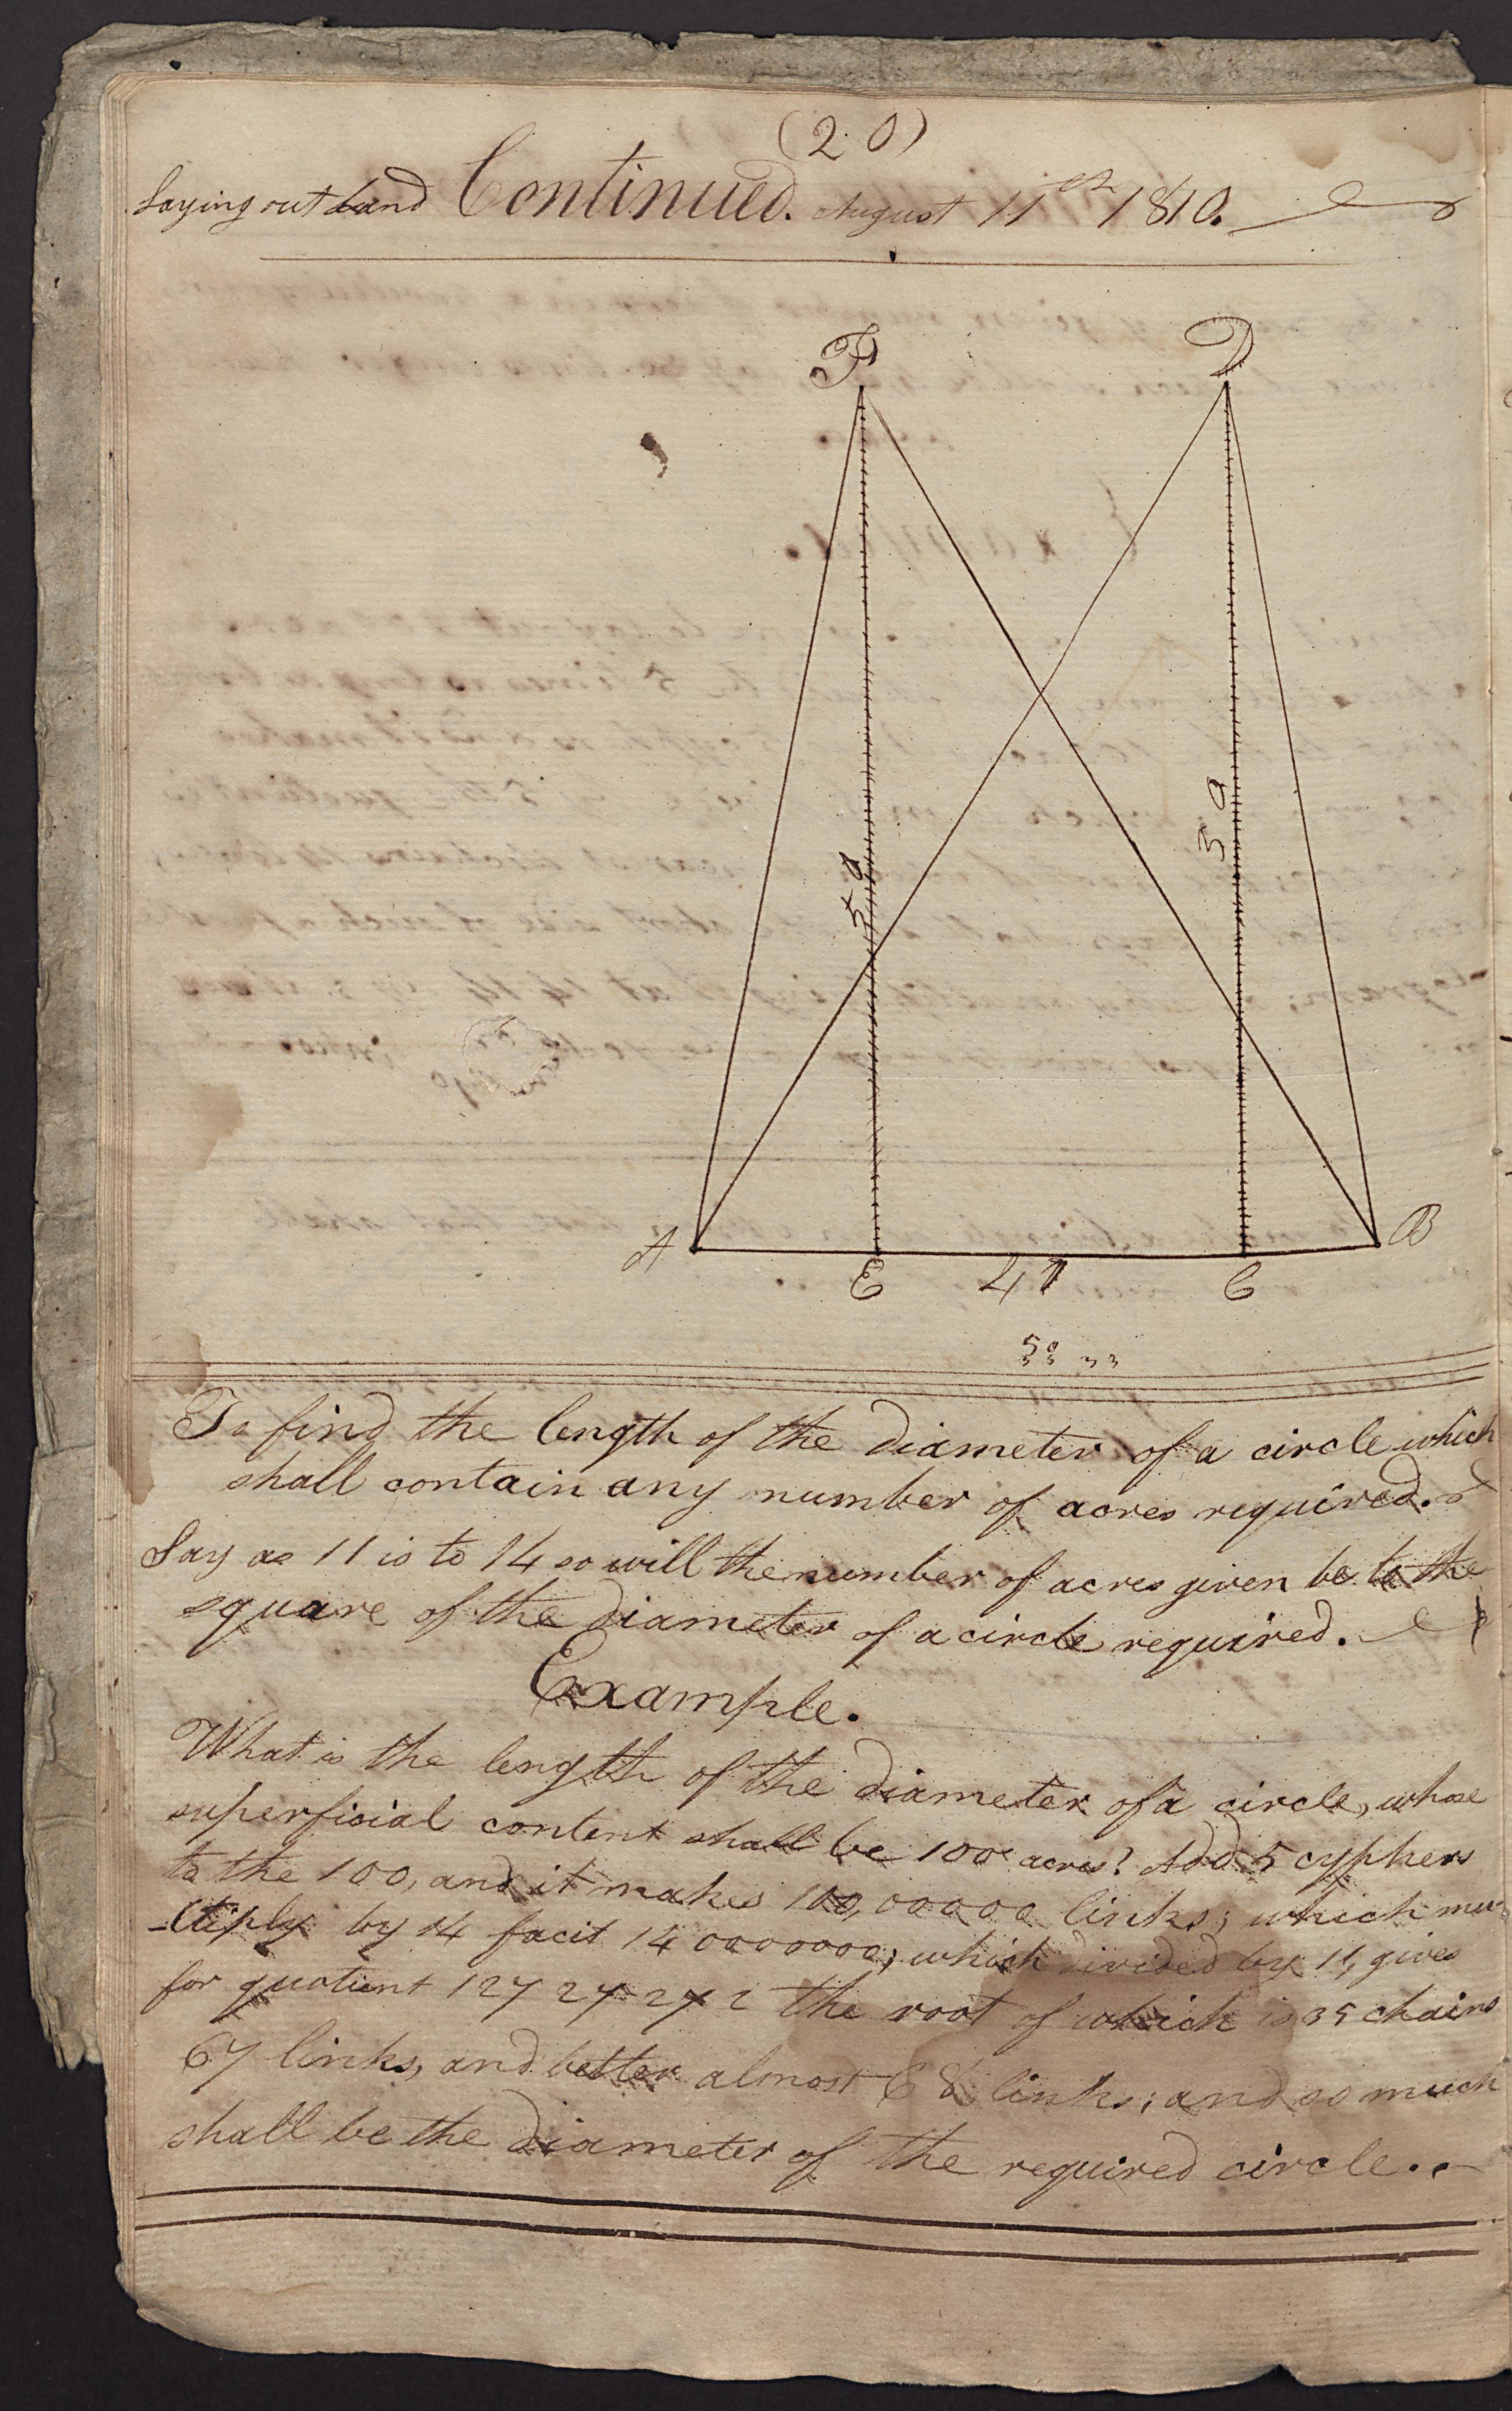 (20)
Laying out Land Continued. August 11th 1810.
F D
50
50
A E 47 C B
50
33 33
To find the length of the diameter of a circle which
shall contain any number of acres required.
Say as 11 is to 14 so will the number of acres given be to the
square of the diameter of a circle required.
Example.
What is the length of the diameter of a circle, whose
superficial content shall be 100 acres? Add 5 cyphers
to the 100, and it makes 100,00000 links; which mu-
-ltiply by 14 facit 140000000; which divided by 11, gives
for quotient 12727272 the root of which is 35 chains
67 links, and better almost 68 links; and so much
shall be the diameter of the required circle..